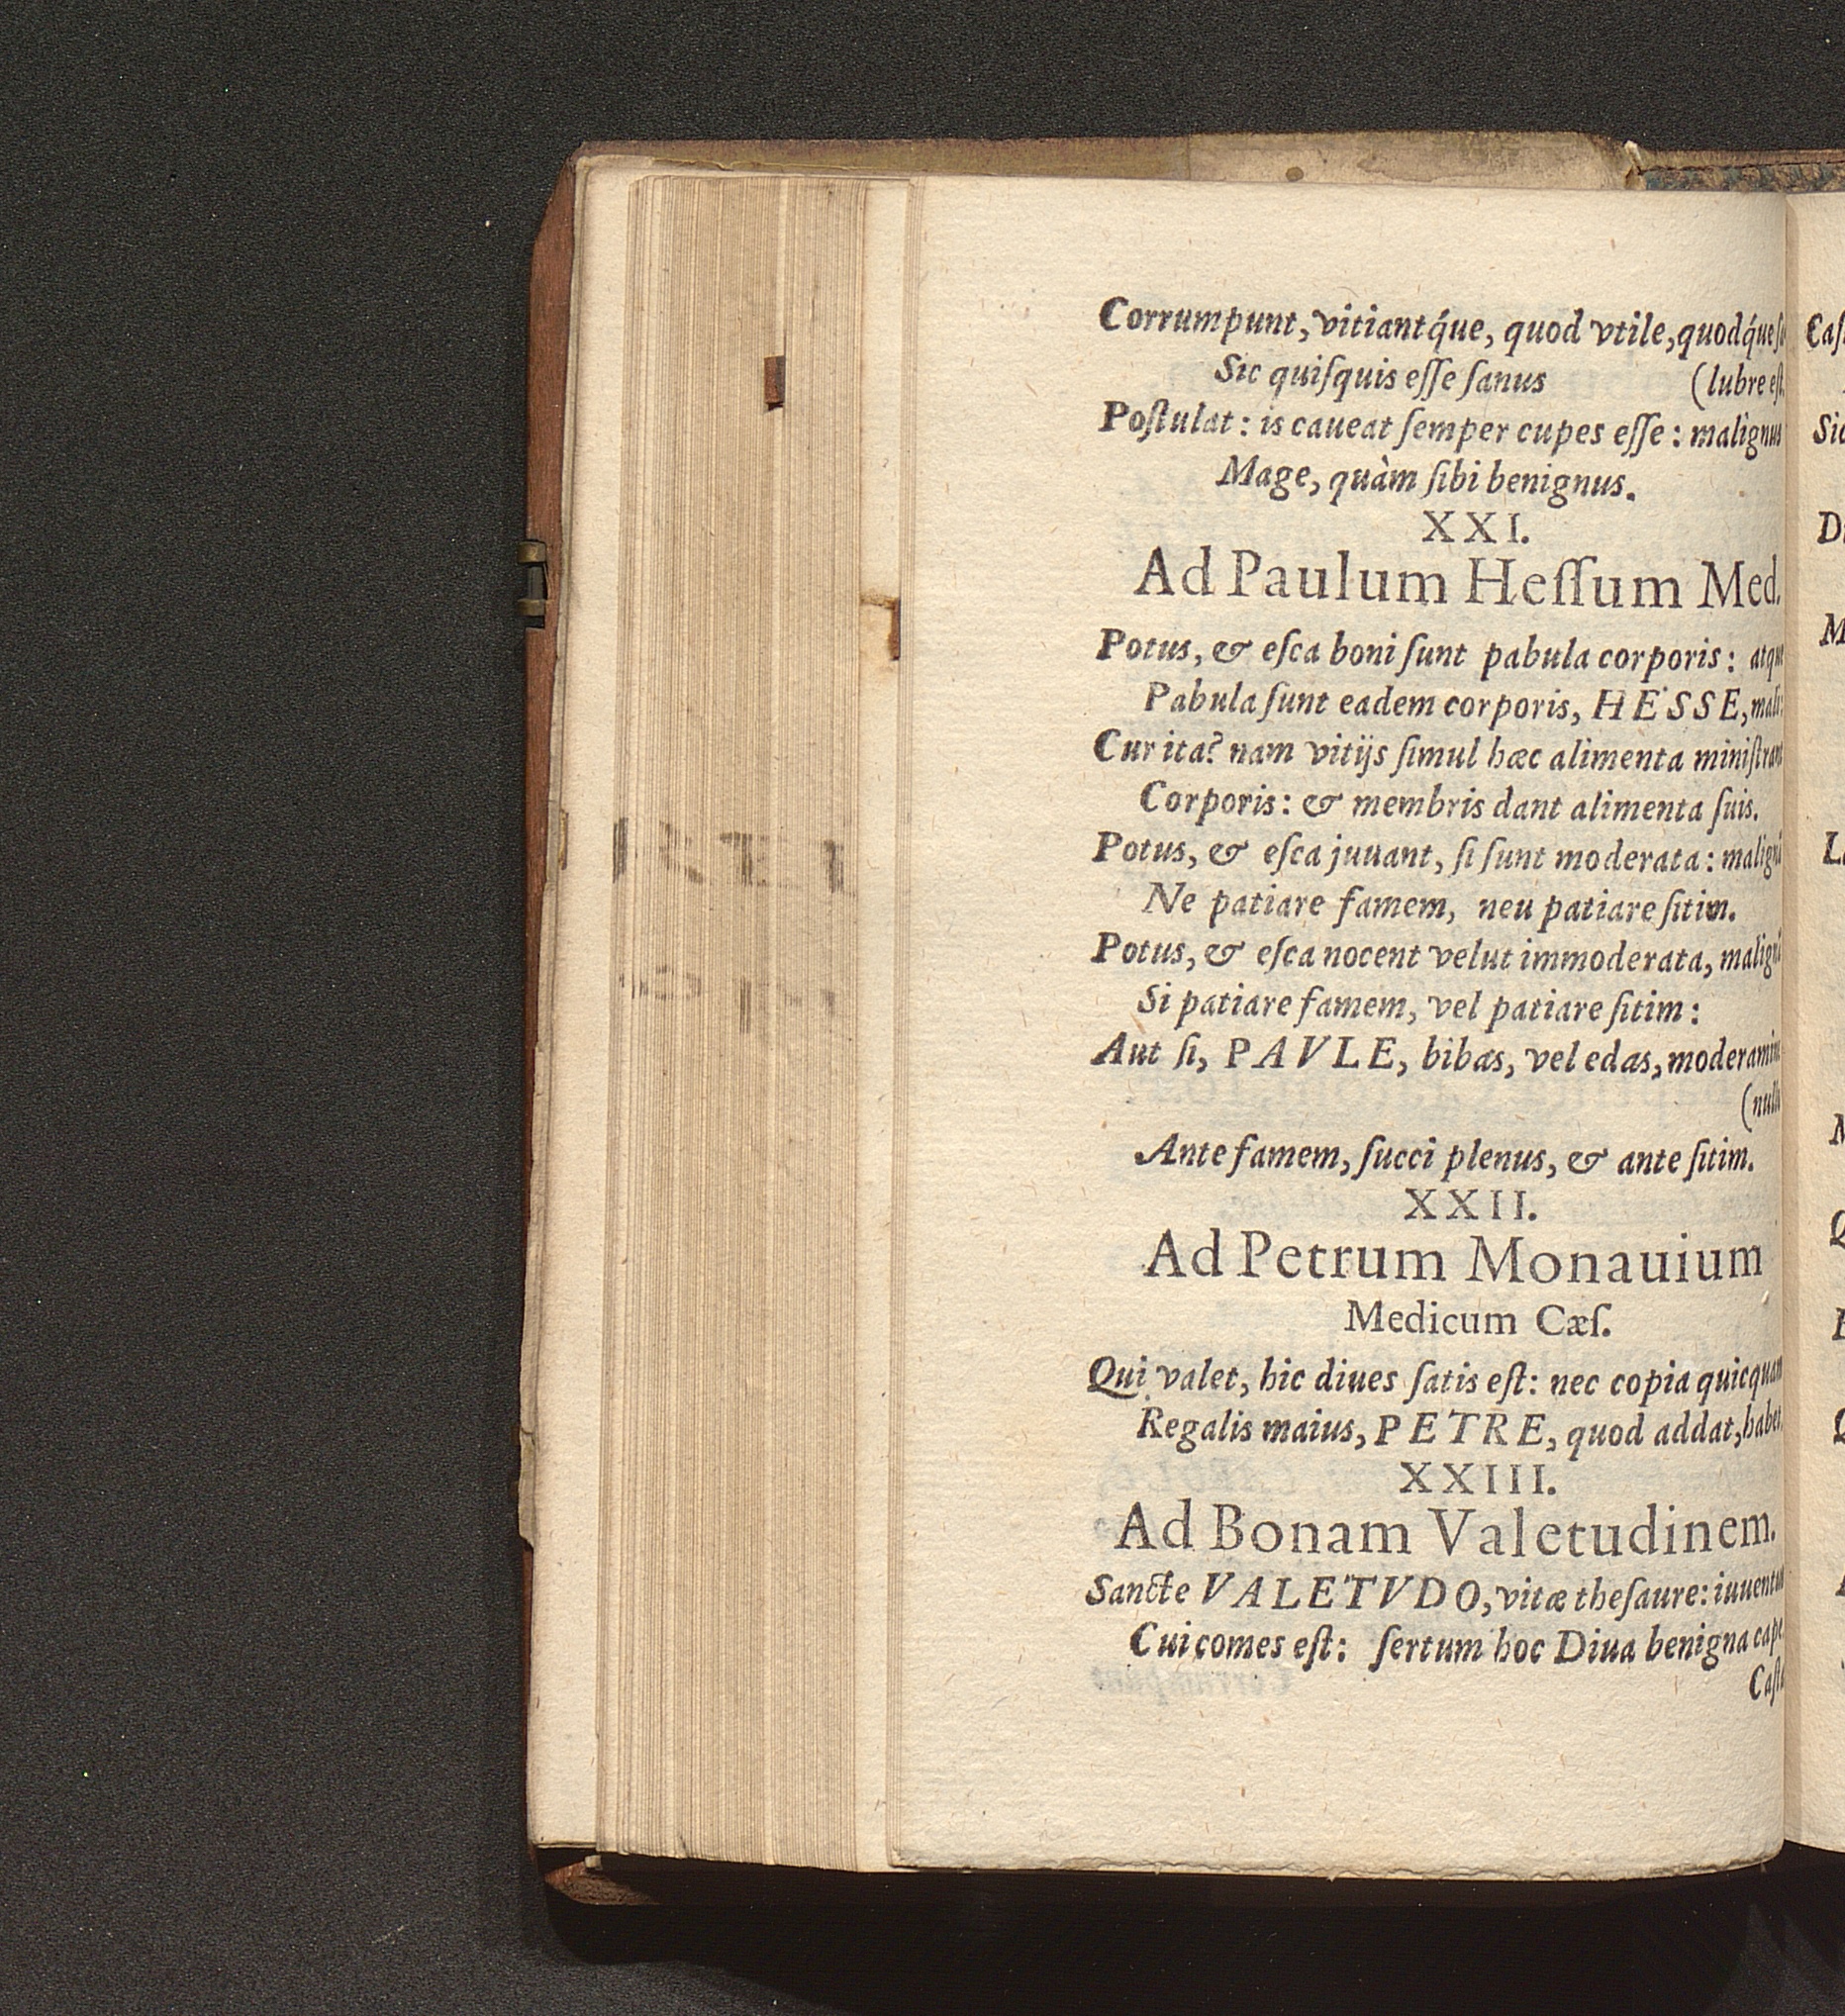 Corrumpunt, vitiantq́ue, quod vtile, quodq́ue ſa
Sic quiſquis eſſe ſanus (lubre eſt.
Poſtulat: is caueat ſemper cupes eſſe: malignus
Mage, quàm ſibi benignus.
XXI.
Ad Paulum Heſſum Med.
Potus, & eſca boni ſunt pabula corporis: atque
Pabula ſunt eadem corporis, HESSE, mali:
Cur ita? nam vitijs ſimul hæc alimenta miniſtrant
Corporis: & membris dant alimenta ſuis.
Potus, & eſca juuant, ſi ſunt moderata: maligni
Ne patiare famem, neu patiare ſitim.
Potus, & eſca nocent velut immoderata, maligni
Si patiare famem, vel patiare ſitim:
Aut ſi, PAVLE, bibas, vel edas, moderamine
(nullo
Ante famem, ſucci plenus, & ante ſitim.
XXII.
Ad Petrum Monauium
Medicum Cæſ.
Qui valet, hic diues ſatis eſt: nec copia quicquam
Regalis maius, PETRE, quod addat, habet.
XXIII.
Ad Bonam Valetudinem.
Sancte VALETVDO, vitæ theſaure: iuuentus
Cui comes eſt: ſertum hoc Diua benigna cape.
Caſta